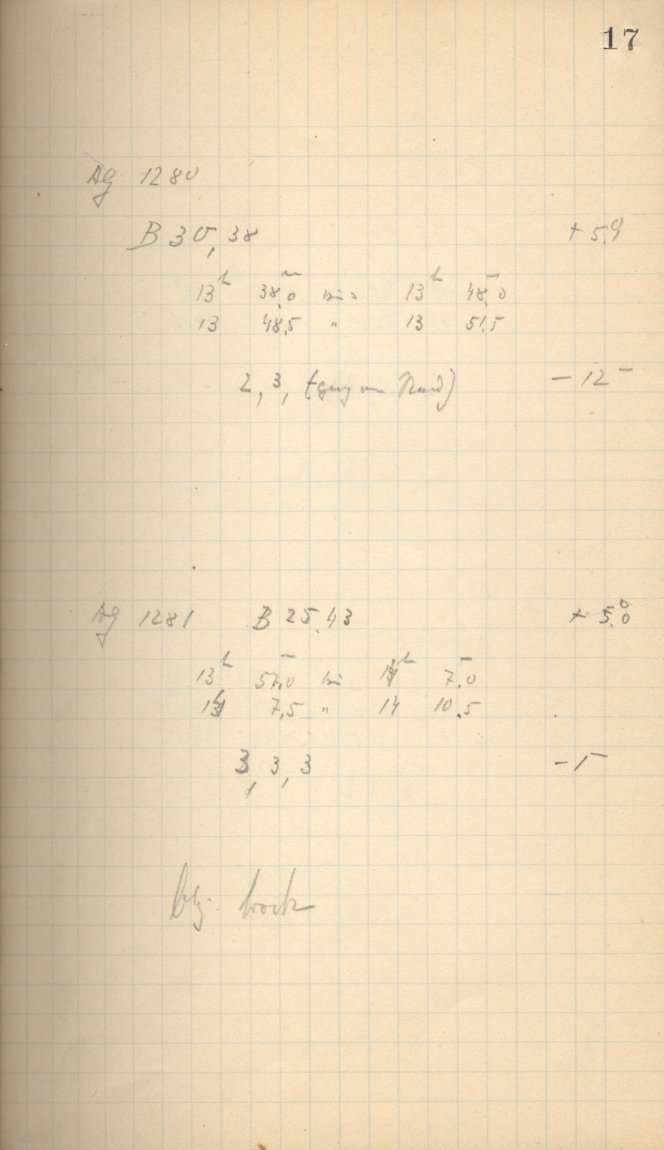 17
Ag 1280
B 30, 38 + 5,9
13h 38,0m bis 13h 48,0m
13 48,5 " 13 51,5
2, 3, ( am Rand) - 12m
Ag 1281 B 25,43 + 5,0
13h 57,0m bis 14h 7,0m
14 7,5 " 14 10,5
3, 3, 3 - 1m